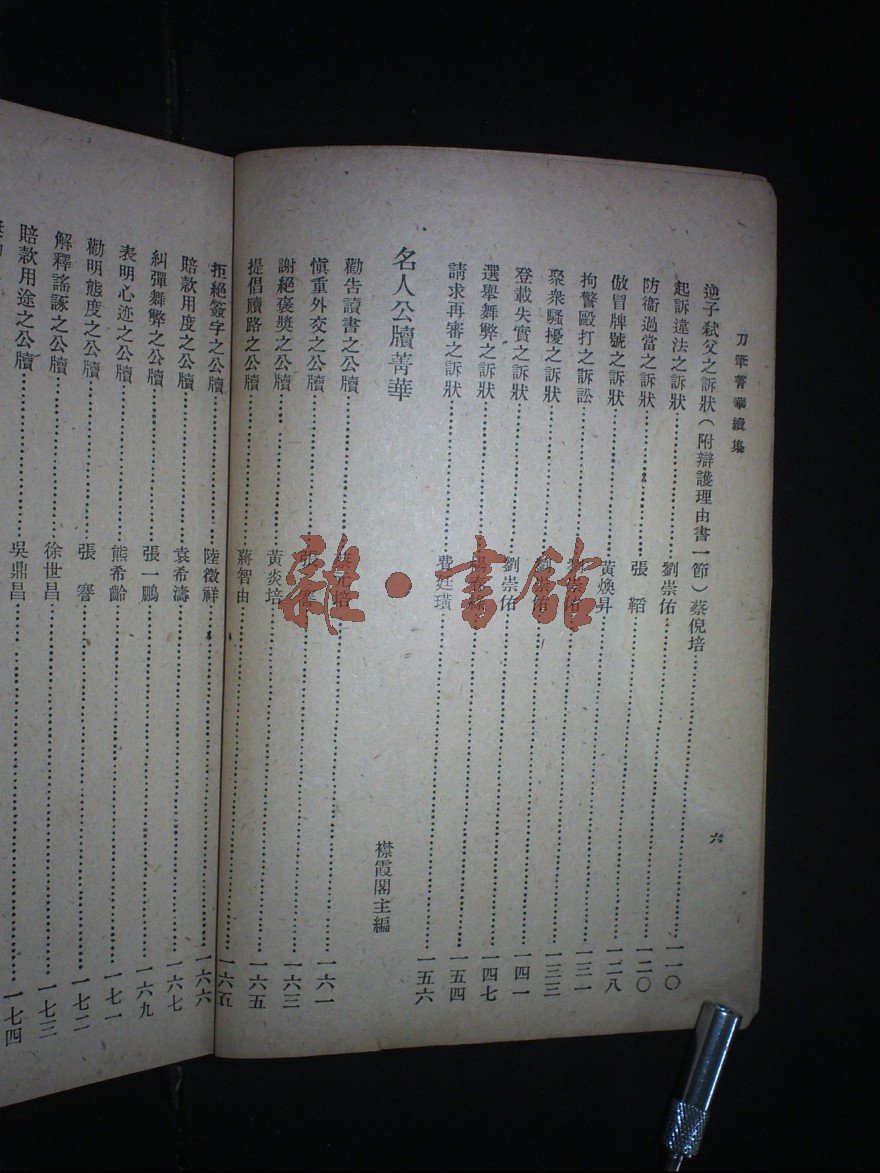 刀筆菁華續集 六
逆子弒父之訴狀(附辯護理由書一節)蔡倪培……一一〇
起訴違法之訴狀……劉崇佑……一二〇
防衞過當之訴狀……張韜……一二八
倣冒牌號之訴狀……黃煥昇……一三一
拘警毆打之訴訟……劉崇佑……一三三
聚衆騷擾之訴狀……劉崇佑……一四一
登載失實之訴狀……劉崇佑……一四七
選舉舞弊之訴狀……一五四
請求再審之訴狀……費廷璜……一五六
名人公牘菁華 襟霞閣主編
勸告讀書之公牘……蔡元培……一六一
愼重外交之公牘……張謇……一六三
謝絕褒獎之公牘……黃炎培……一六五
提倡贖路之公牘……蔣智由……一六五
拒絕簽字之公牘……陸徵祥……一六六
賠款用度之公牘……袁希濤……一六七
糾彈舞弊之公牘……張一鵬……一六九
表明心迹之公牘……熊希齡……一七一
勸明態度之公牘……張謇……一七二
解釋謠諑之公牘……徐世昌……一七三
賠款用途之公牘……吳鼎昌……一七四
雜·書館